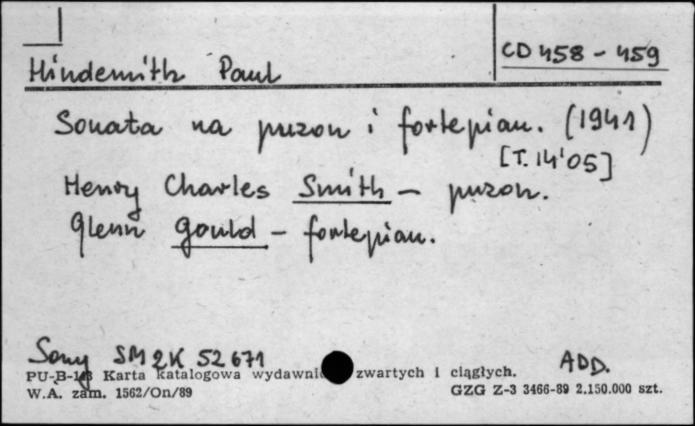 CD 458 - 459
Hindemith Paul
Sonata na puzon i fortepian. (1941)
[T. 14'05]
Henry Charles Smith - puzon.
Glenn Gould - fortepian.
Sony SM2K 52671
ADD.
PU-B-1 Karta katalogowa zwartych i ciągłych.
W.A. zam. 1562/On/89
GZG Z-3 3466-89 2.150.000 szt.